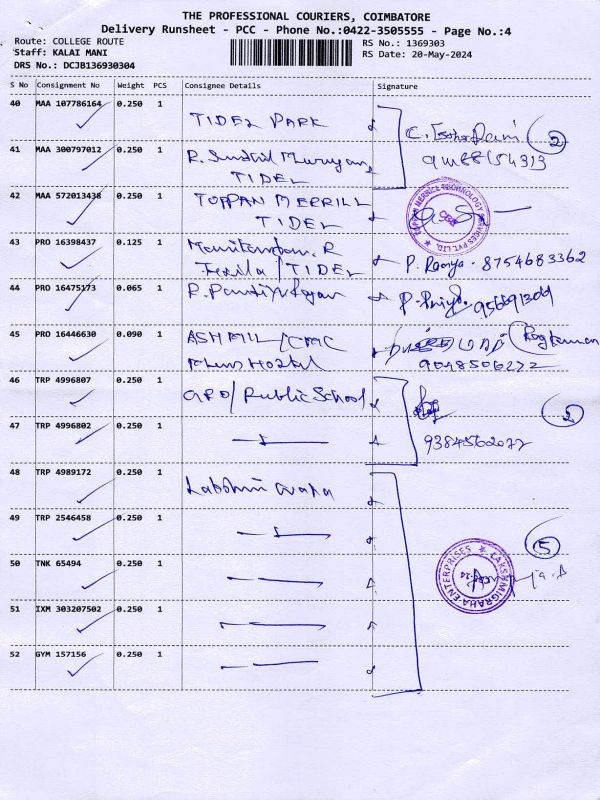 THE PROFESSIONAL COURIERS, COIMBATORE
Delivery Runsheet - PCC - Phone No.:0422-3505555 - Page No.:4
Route: COLLEGE ROUTE RS No.: 1369303
Staff: KALAI MANI RS Date: 20-May-2024
DRS No.: DCJB136930304
S No Consignment No Weight PCS Consignee Details Signature
40 MAA 107786164 0.250 1 TIDEL PARK
2
41 MAA 300797012 0.250 1
TIDEL
42 MAA 572013438 0.250 1 TOPPAN MERRILL
TIDEL
43 PRO 16398437 0.125 1
/TIDEL P. Ramya - 8754683362
44 PRO 16475173 0.065 1 P. Priya
45 PRO 16446630 0.090 1 ASHMIL/CMC
9048506272
46 TRP 4996807 0.250 1 GRD/Public School
2
47 TRP 4996802 0.250 1 9384562077
48 TRP 4989172 0.250 1
49 TRP 2546458 0.250 1
5
LAKSHMIGRAHA ENTERPRISES
50 TNK 65494 0.250 1
51 IXM 303207502 0.250 1
52 GYM 157156 0.250 1